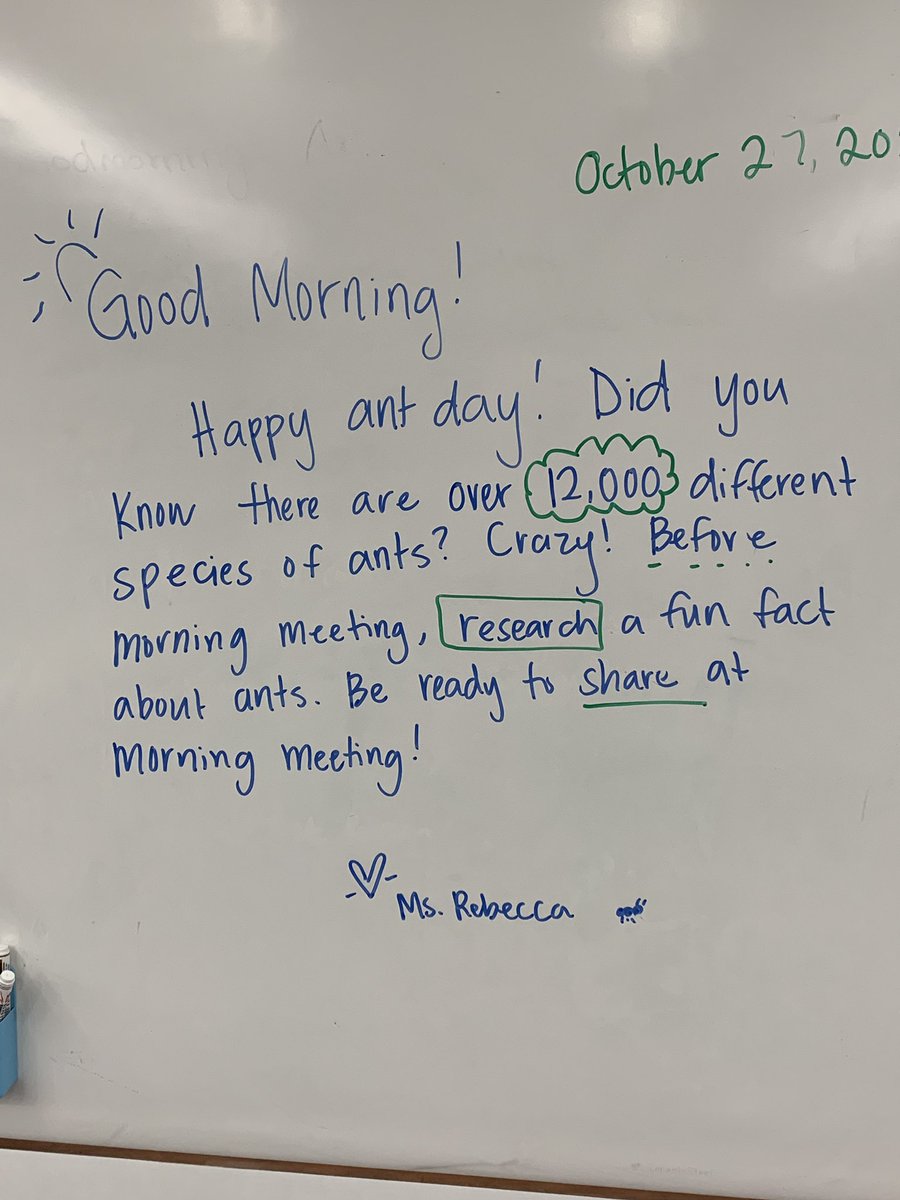 October 27, 20
Good Morning!
Happy ant day! Did you
know there are over 12,000 different
species of ants? Crazy! Before
morning meeting, research a fun fact
about ants. Be ready to share at
morning meeting!
Ms. Rebecca